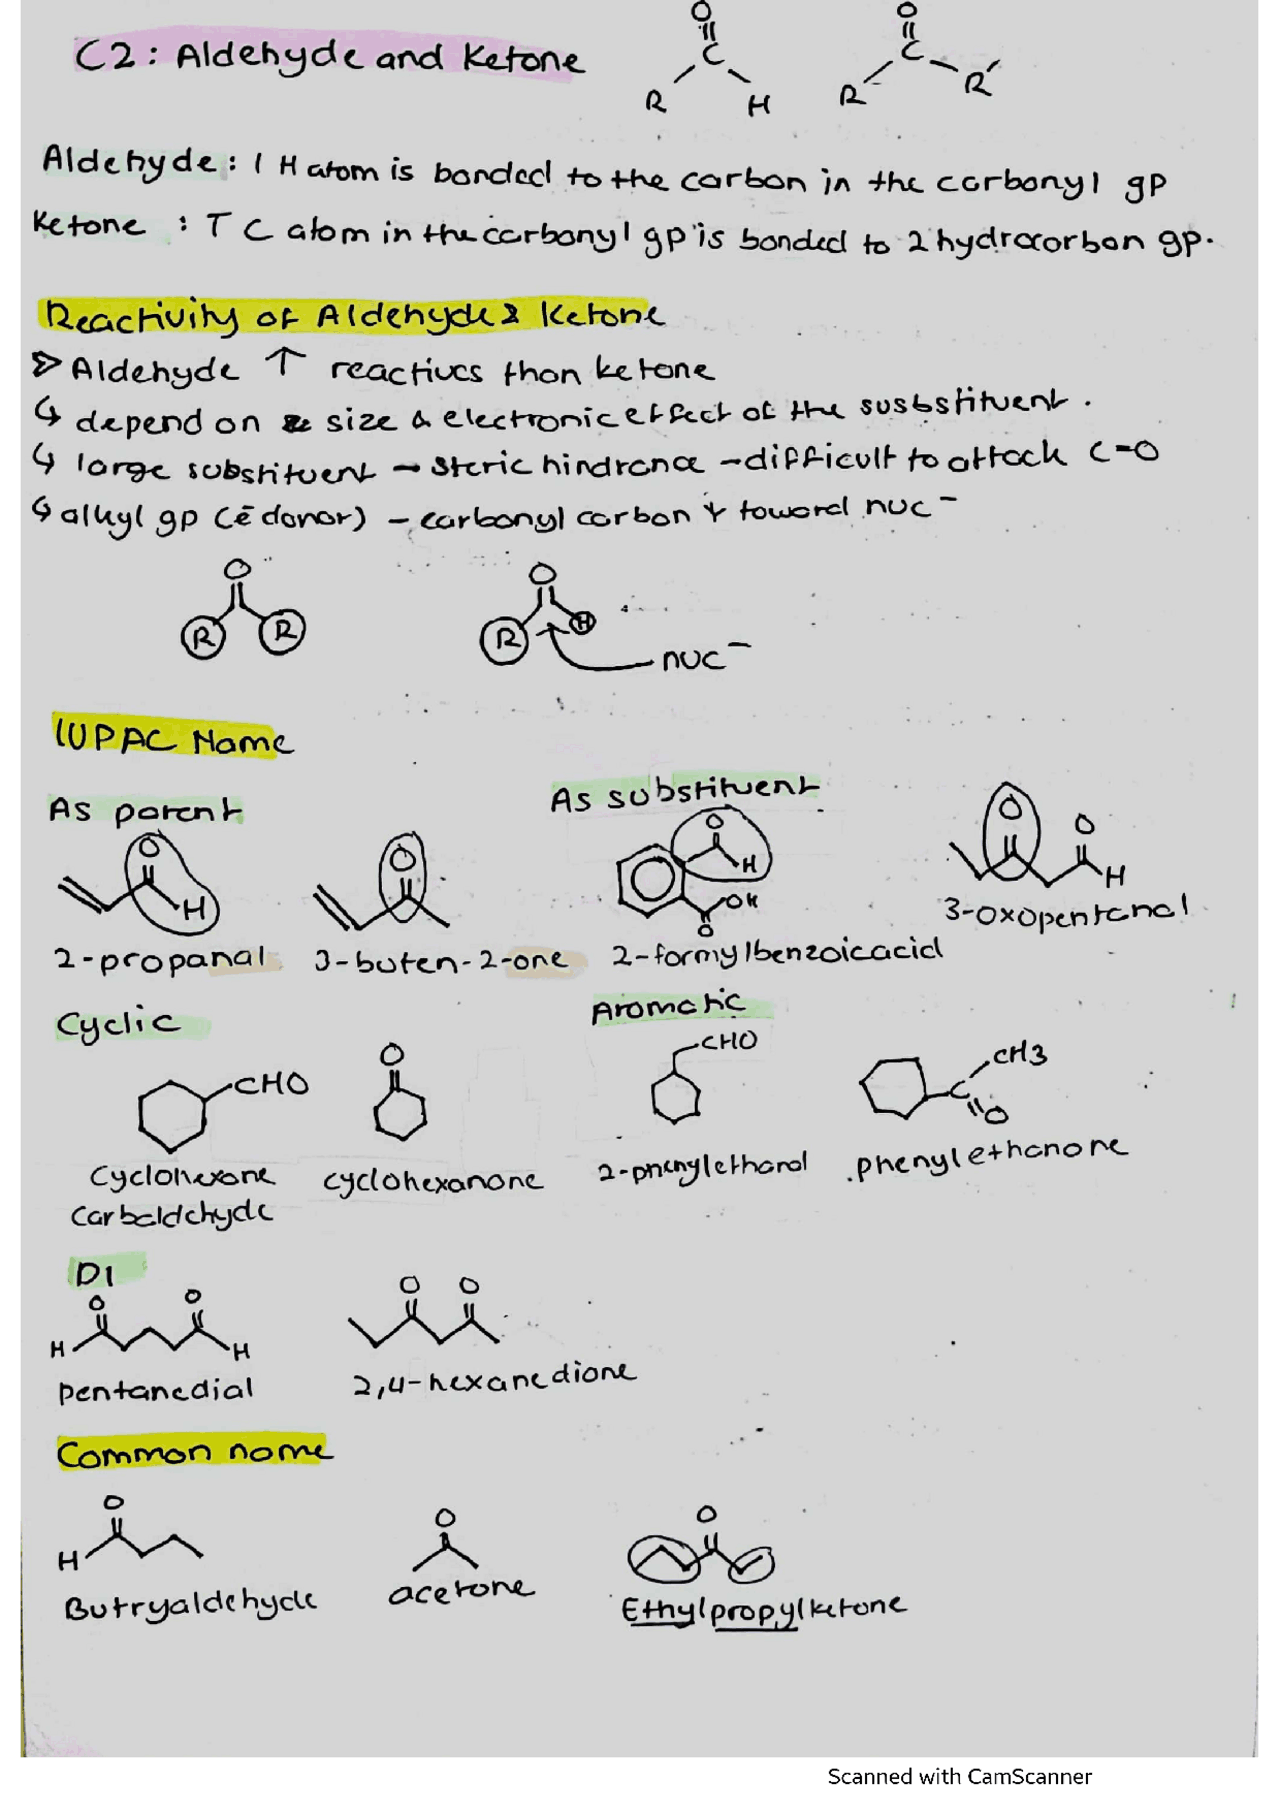 C2: Aldehyde and Ketone
O
C
R H
O
C
R R'
Aldehyde: 1 H atom is bonded to the carbon in the carbonyl gp
Ketone : T C atom in the carbonyl gp is bonded to 2 hydrocarbon gp.
Reactivity of Aldehyde & Ketone
> Aldehyde ↑ reactives than ketone
↳ depend on size & electronic effect of the susbstituent.
↳ large substituent → steric hindrance - difficult to attack C=O
↳ alkyl gp (ē donor) - carbonyl carbon ↓ toward nuc⁻
O
R R
O
R H
nuc⁻
IUPAC Name
As parent
As substituent
O
H
O
O
H
OH
O
O
O
H
2-propanal
3-buten-2-one
2-formylbenzoicacid
3-oxopentanal
Cyclic
Aromatic
CHO
O
CHO
CH3
C
O
Cyclohexane
carbaldehyde
cyclohexanone
2-phenylethanal
phenylethanone
DI
O O
H H
O O
pentanedial
2,4-hexanedione
Common name
O
H
O
O
Butryaldehyde
acetone
Ethylpropylketone
Scanned with CamScanner